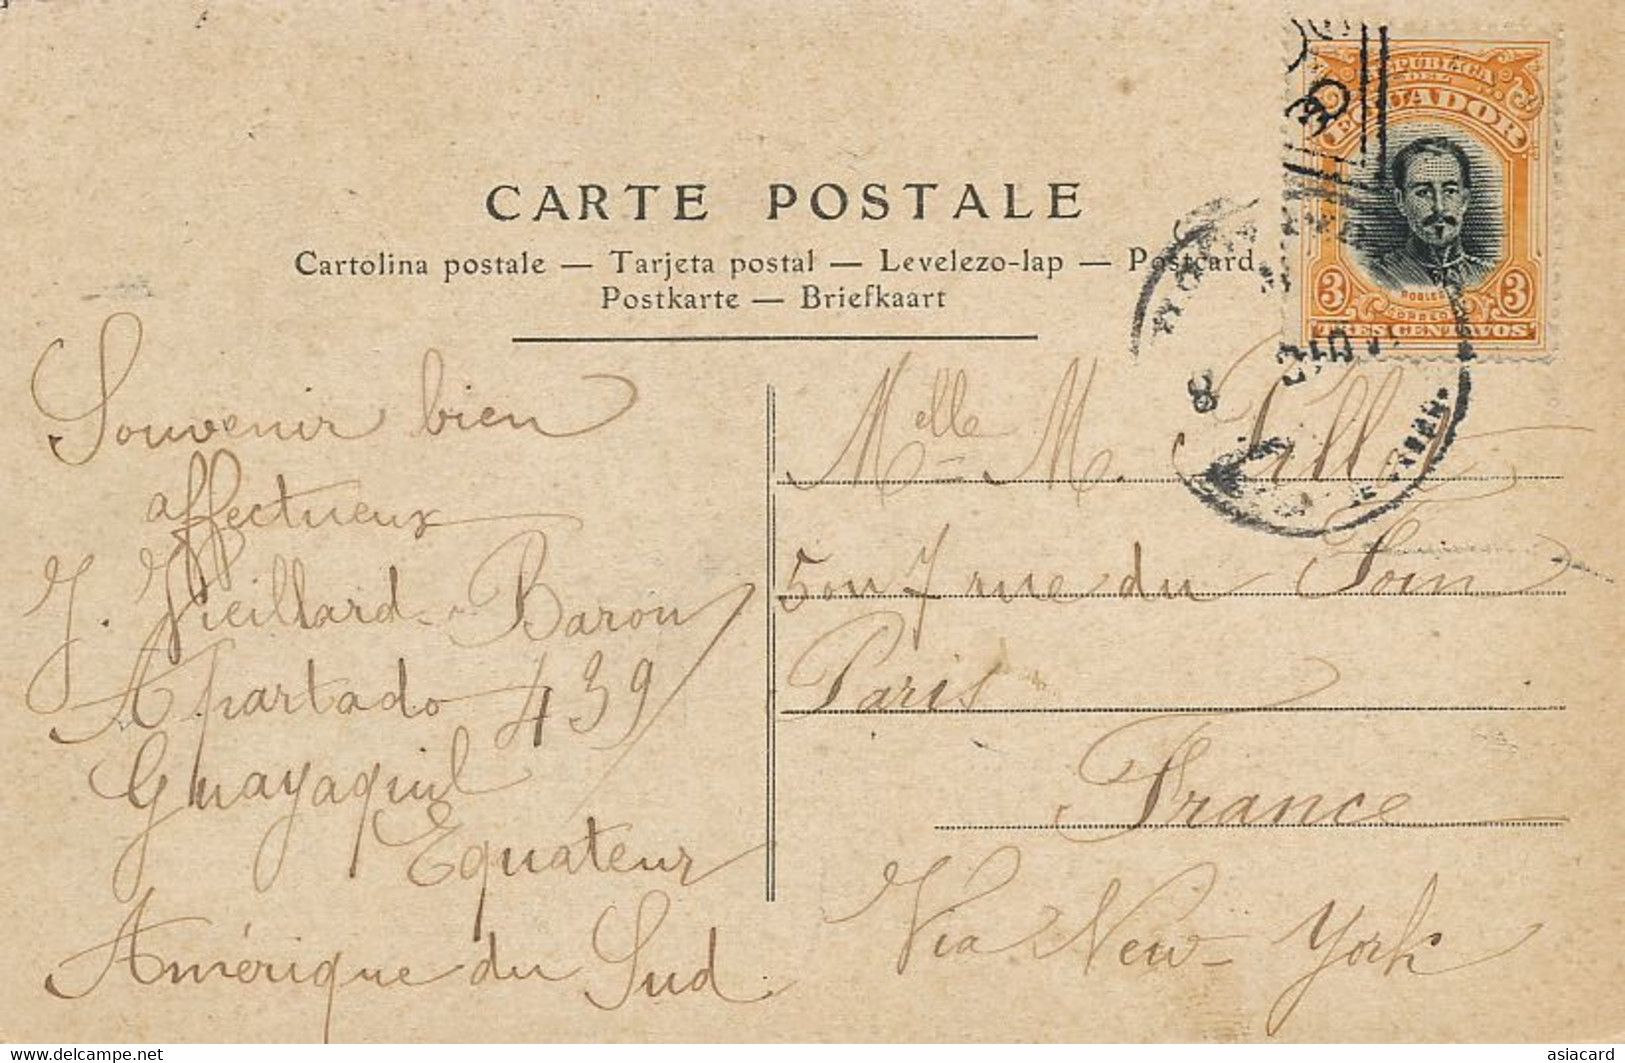 CARTE POSTALE
Cartolina postale — Tarjeta postal — Levelezo-lap — Postcard
Postkarte — Briefkaart
REPUBLICA
DEL
ECUADOR
ROBLES
CORREOS
3 3
TRES CENTAVOS
8
Souvenir bien
affectueux
J. Vieillard-Baron
Apartado 439
Guayaquil
Equateur
Amérique du Sud.
Melle M.
5 ou 7 rue du Foin
Paris
France
Via New-York
delcampe.net
asiacard